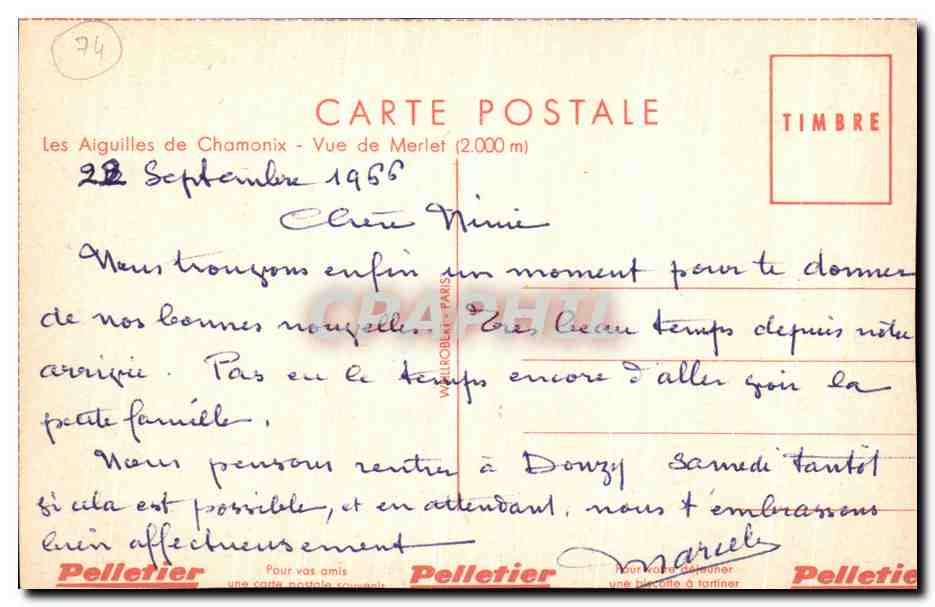 74
CARTE POSTALE
TIMBRE
Les Aiguilles de Chamonix - Vue de Merlet (2.000 m)
22 Septembre 1966
Chère Ninie
Nous trouvons enfin un moment pour te donner
de nos bonnes nouvelles. Très beau temps depuis nôtre
arrivée. Pas eu le temps encore d'aller voir la
petite famille.
Nous pensons rentrer à Donzy samedi tantôt
si cela est possible, et en attendant, nous t'embrassons
bien affectueusement
Marcel
WEILLROBERT - PARIS
CRAPHIL
Pelletier
Pour vos amis
une carte postale souvenir
Pelletier
Pour votre déjeuner
une biscotte à tartiner
Pelletie